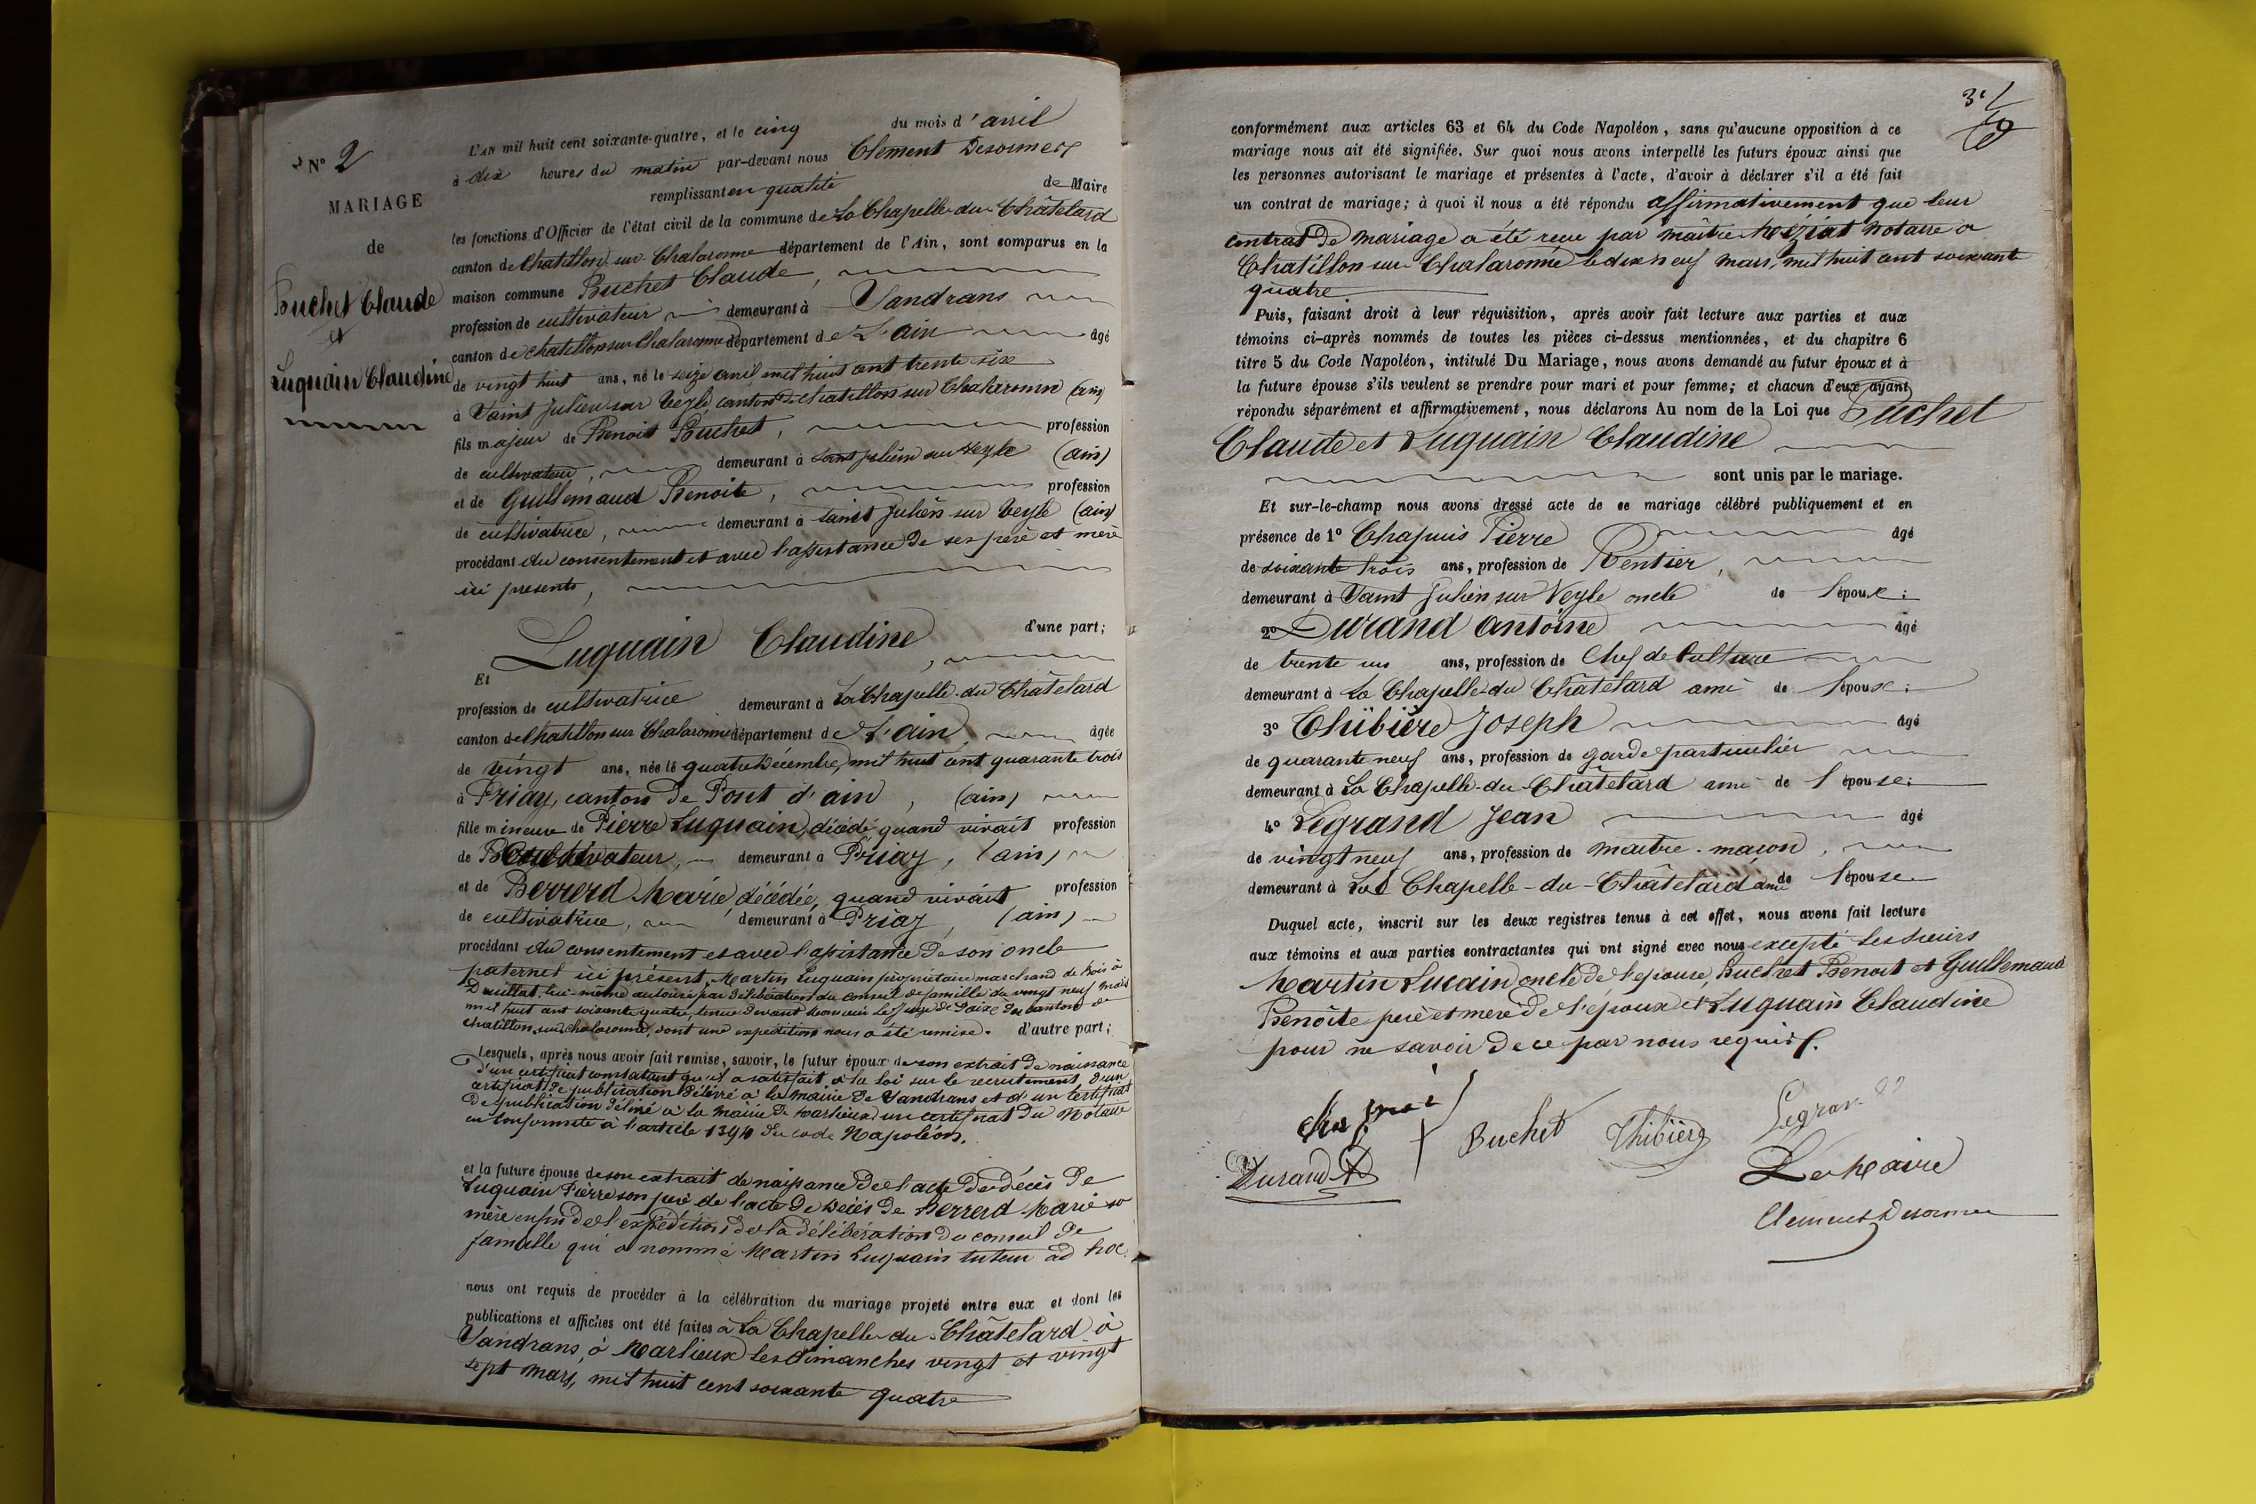 N° 2
MARIAGE
de
Buchet Claude
et
Luquain Claudine
L'AN mil huit cent soixante-quatre, et le cinq du mois d'avril
à dix heures du matin par-devant nous Clément Desormers
remplissant en qualité de Maire
les fonctions d'Officier de l'état civil de la commune de La Chapelle-du-Châtelard
canton de Chatillon sur Chalaronne département de l'Ain, sont comparus en la
maison commune Buchet Claude,
profession de cultivateur demeurant à Sandrans
canton de chatillon sur Chalaronne département de L'ain âgé
de vingt huit ans, né le seize avril mil huit cent trente six
à Saint Julien sur Veyle, canton de chatillon sur Chalaronne (ain)
fils majeur de Benoit Buchet, profession
de cultivateur, demeurant à saint julien sur veyle (ain)
et de Guillemaud Benoite, profession
de cultivatrice, demeurant à saint Julien sur Veyle (ain)
procédant du consentement et avec l'assistance de ses père et mère
ici présents,
d'une part;
Et Luquain Claudine,
profession de cultivatrice demeurant à La Chapelle-du Châtelard
canton de Chatillon sur Chalaronne département de L'ain, âgée
de vingt ans, née le quatre décembre, mil huit cent quarante trois
à Priay, canton de Pont d'ain, (ain)
fille mineure de Pierre Luquain, décédé, quand vivait profession
de cultivateur, demeurant à Priay, (ain)
et de Berrerd Marie, décédée, quand vivait profession
de cultivatrice, demeurant à Priay, (ain)
procédant du consentement et avec l'assistance de son oncle
paternel ici présent, Martin Luquain propriétaire marchand de bois à
Druillat, lui-même autorisé par délibération du conseil de famille du vingt neuf mars
mil huit cent soixante quatre, tenue devant Monsieur le Juge de Paix du canton de
chatillon sur chalaronne, dont une expédition nous a été remise. d'autre part;
Lesquels, après nous avoir fait remise, savoir, le futur époux de son extrait de naissance
d'un certificat constatant qu'il a satisfait à la loi sur le recrutement, d'un
certificat de publication délivré à la mairie de Sandrans et d'un certificat
de publication délivré à la mairie de Marlieux, un certificat du Notaire
en conformité à l'article 1394 du code Napoléon.
et la future épouse de son extrait de naissance de l'acte de décès de
Luquain Pierre son père de l'acte de décès de Berrerd Marie sa
mère enfin de l'expédition de la délibération du conseil de
famille qui a nommé Martin Luquain tuteur ad hoc.
nous ont requis de procéder à la célébration du mariage projeté entre eux et dont les
publications et affiches ont été faites à La Chapelle-du-Châtelard à
Sandrans, à Marlieux les dimanches vingt et vingt
sept mars, mil huit cent soixante quatre
conformément aux articles 63 et 64 du Code Napoléon, sans qu'aucune opposition à ce
mariage nous ait été signifiée. Sur quoi nous avons interpellé les futurs époux ainsi que
les personnes autorisant le mariage et présentes à l'acte, d'avoir à déclarer s'il a été fait
un contrat de mariage; à quoi il nous a été répondu affirmativement que leur
contrat de mariage a été reçu par maître Moiziat Notaire à
Chatillon sur Chalaronne le dix neuf mars, mil huit cent soixante
quatre
Puis, faisant droit à leur réquisition, après avoir fait lecture aux parties et aux
témoins ci-après nommés de toutes les pièces ci-dessus mentionnées, et du chapitre 6
titre 5 du Code Napoléon, intitulé Du Mariage, nous avons demandé au futur époux et à
la future épouse s'ils veulent se prendre pour mari et pour femme; et chacun d'eux ayant
répondu séparément et affirmativement, nous déclarons Au nom de la Loi que Buchet
Claude et Luquain Claudine
sont unis par le mariage.
Et sur-le-champ nous avons dressé acte de ce mariage célébré publiquement et en
présence de 1° Chapuis Pierre âgé
de soixante trois ans, profession de Rentier,
demeurant à Saint Julien sur Veyle oncle de l'époux;
2° Durand Antoine âgé
de trente un ans, profession de Chef de Culture
demeurant à La Chapelle-du Châtelard ami de l'épouse;
3° Thibière Joseph âgé
de quarante neuf ans, profession de garde particulier
demeurant à La Chapelle-du-Châtelard ami de l'épouse;
4° Legrand Jean âgé
de vingt neuf ans, profession de maître-maçon,
demeurant à La Chapelle-du-Châtelard ami de l'épouse
Duquel acte, inscrit sur les deux registres tenus à cet effet, nous avons fait lecture
aux témoins et aux parties contractantes qui ont signé avec nous excepté les sieurs
Martin Lucain oncle de l'épouse, Buchet Benoit et Guillemaud
Benoîte père et mère de l'époux et Luquain Claudine
pour ne savoir de ce par nous requis.
Chapuis
Buchet
Thibière
Legrand
Durand
Le Maire
Clement Desormer